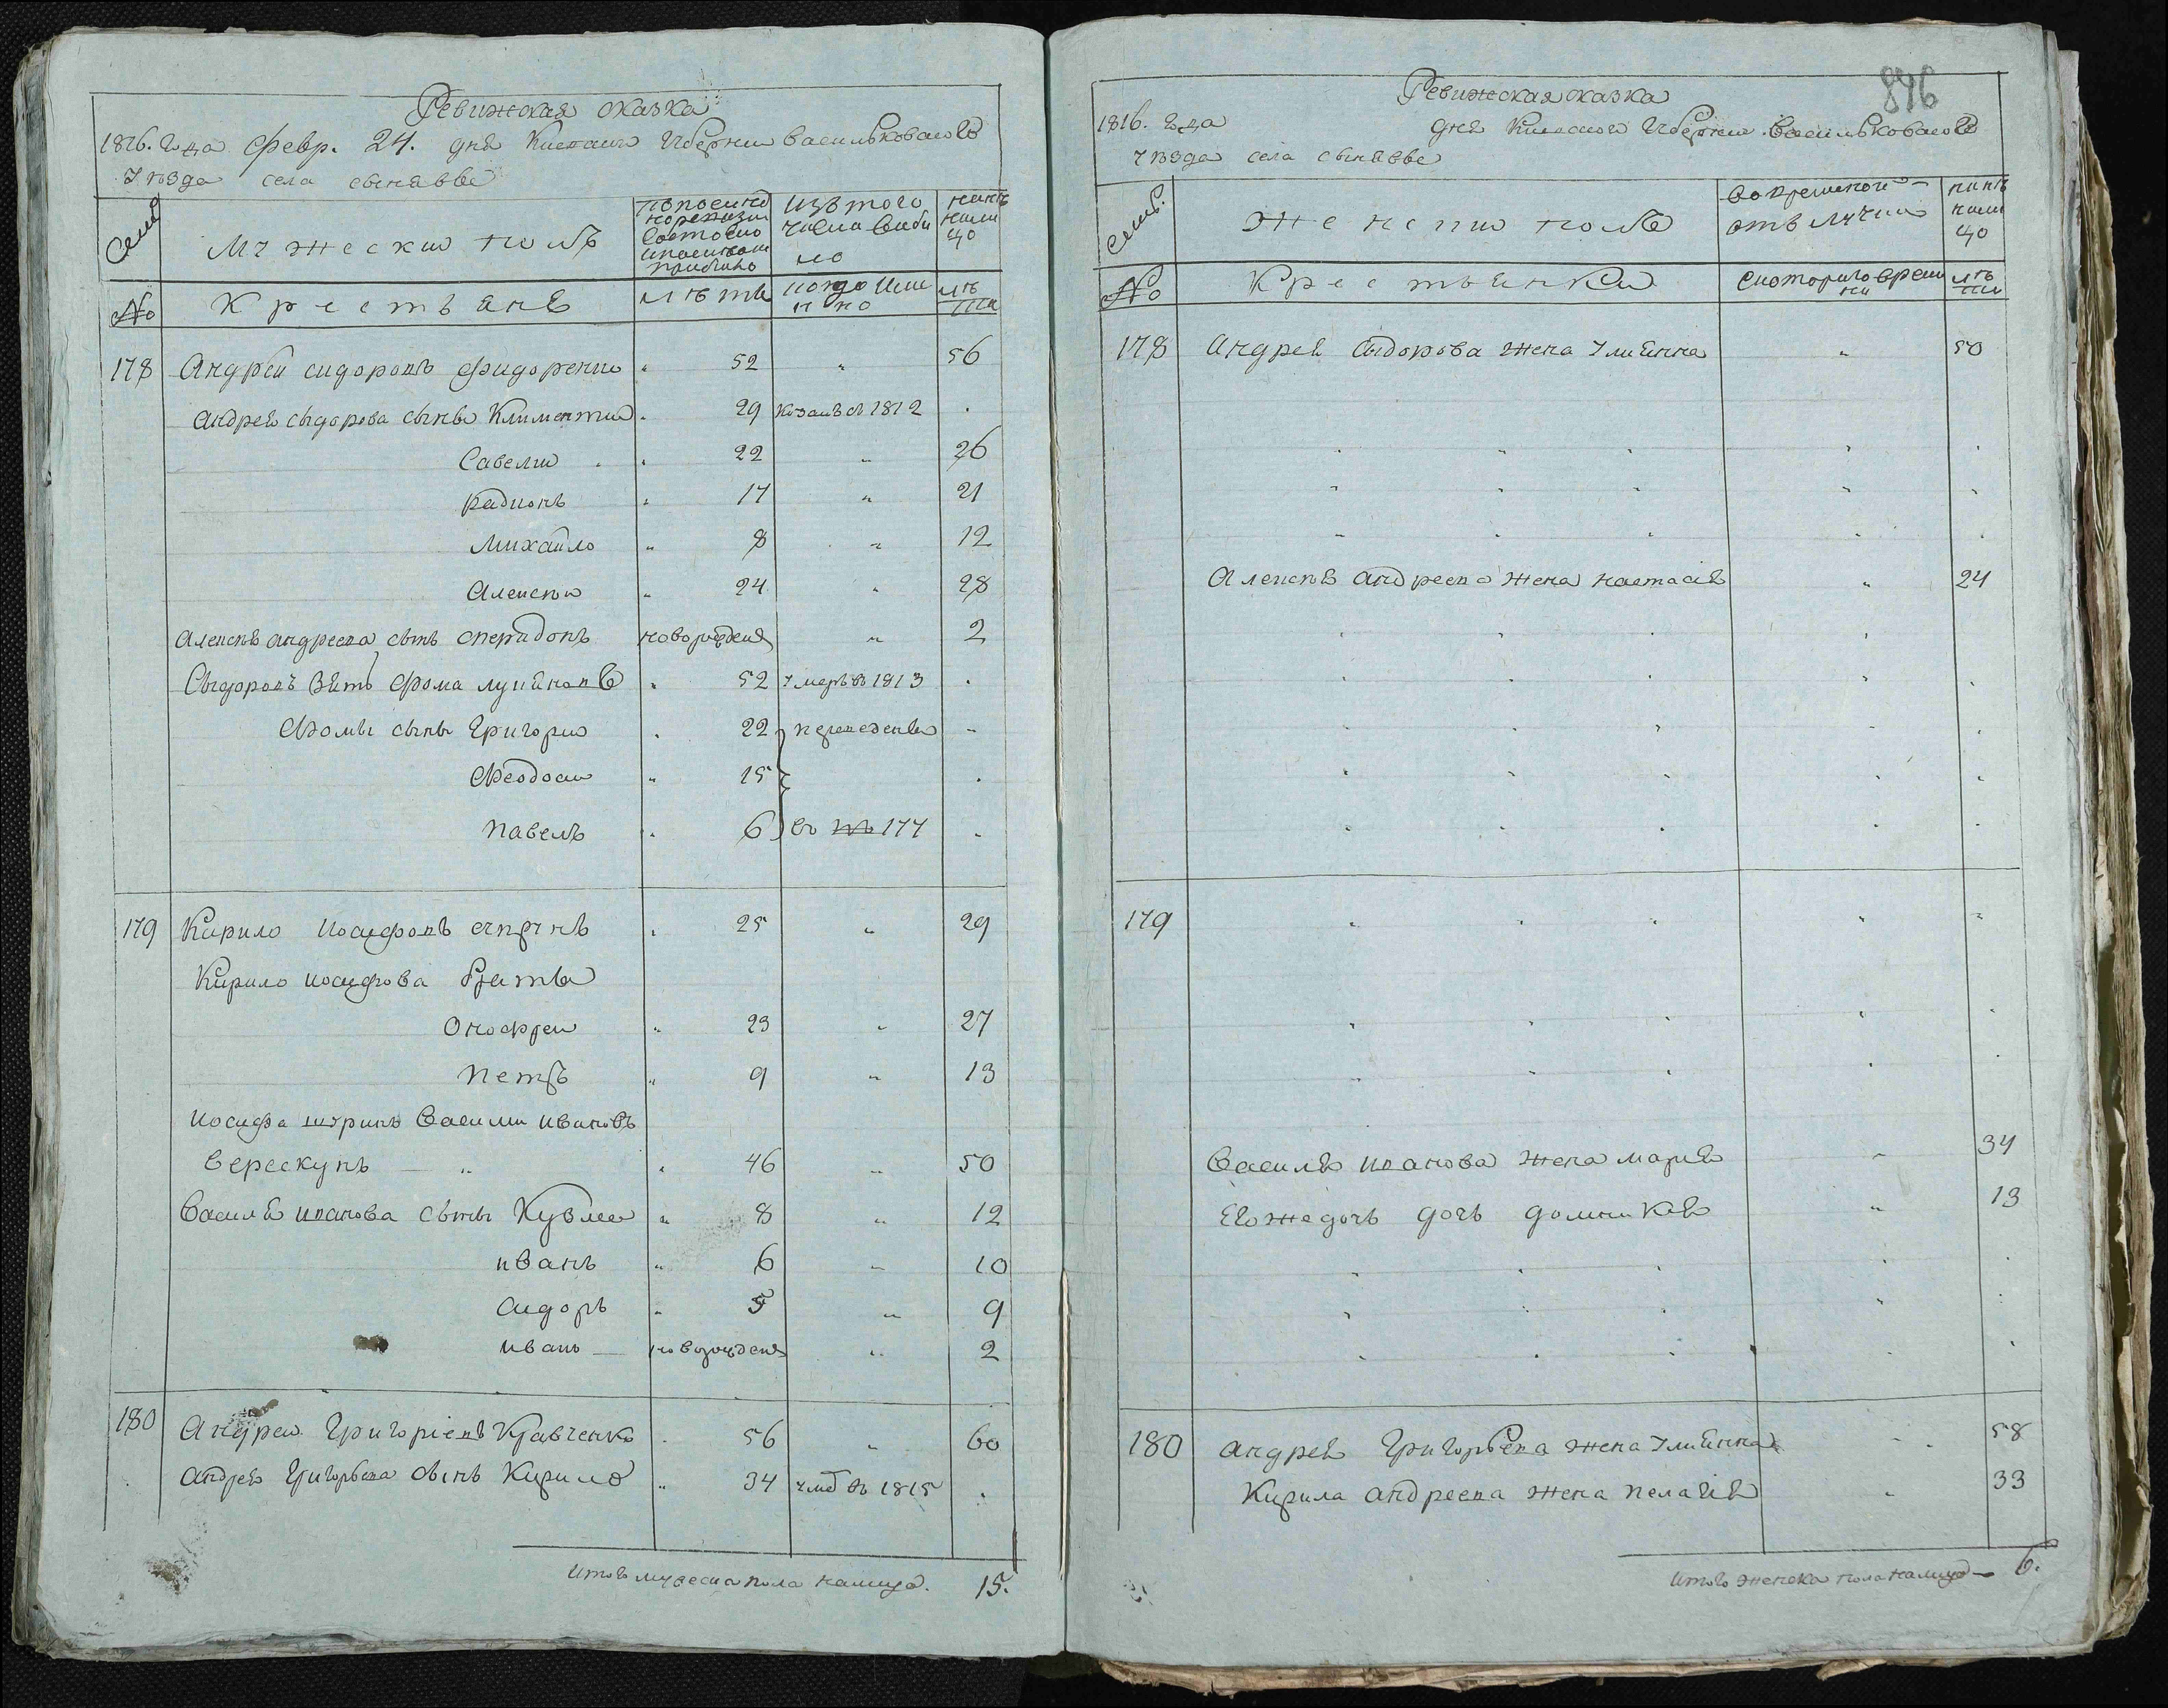 Ревижская сказка
1816. года Февр. 24. дня Киевской Губернии Васильковского
уѣзда села сынявве
Семьи
Мужеский полъ
по последней ревизии состояло и после того прибыло
изъ того числа выбыло
нынѣ на лицо
№
Крестьяне
лѣта
когда именно
лѣта
178 Андрей сидоровъ Фидоренко " 52 " 56
Андрея сыдорова сыны Климентий " 29 козакъ съ 1812 .
Савелий " 22 " 26
Радионъ " 17 " 21
Михайло " 8 " 12
Алексѣй " 24 " 28
Алексѣя андреева сынъ спиридонъ новорожденъ " 2
Сыдоровъ зять Фома лукяновъ " 52 умеръ въ 1813 .
Фомы сыны Григорий " 22 переведены -
Феодосий " 15 .
павелъ " 6 въ № 177 .
179 Кирило Иосифовъ " 25 " 29
Кирило иосифова братья
Онофрей " 23 " 27
Петръ " 9 " 13
Иосифа шуринъ Василий ивановъ
верескунъ " " 46 " 50
Василя иванова сыны Кузма " 8 " 12
иванъ " 6 " 10
сидоръ " 5 " 9
иванъ новорожденъ " 2
180 Андрей Григоріевъ Кравченко " 56 " 60
Андрея Григорьева сынъ Кирило " 34 умеръ въ 1815 .
Итого мужеска пола налицо. 15.
846
Ревижская сказка
1816. года дня Киевской Губернии Васильковского
уѣзда села сынявве
Семьи
Женский полъ
во временной отлучке
нынѣ на лицо
№
Крестьянки
с которого времени
лѣта
178 Андрея Сыдорова жена Улиянна " 50
Алексѣя андреева жена настасія " 24
179
Василя иванова жена мария " 34
Его же дочь дочь домникія " 13
180 Андрея Григорьева жена Улиянна " 58
Кирила андреева жена пелагія " 33
Итого женска пола налицо — 6.